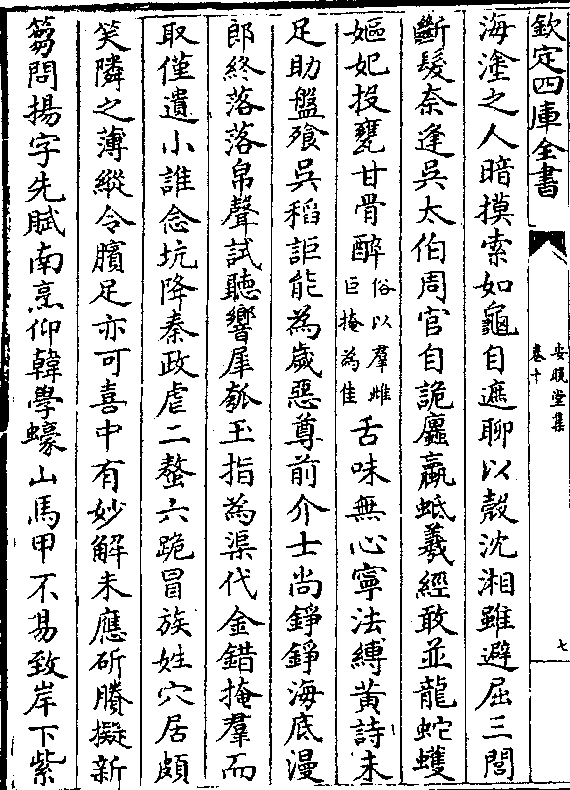 欽定四庫全書
安晚堂集
卷十
七
海塗之人暗摸索如龜自遮聊以殼沈湘雖避屈三閭
斷髮奈逢吳太伯周官自詭麤蠃蚳羲經敢並龍蛇蠖
嫗妃投甕甘骨醉俗以羣雌
巨掩為佳舌味無心寧法縛黃詩未
足助盤飱吳稻詎能為歲惡尊前介士尚錚錚海底漫
郎終落落帛聲試聽響犀瓠玉指為渠代金錯掩羣而
取僅遺小誰念坑降秦政虐二螯六跪冒族姓穴居頗
笑隣之薄縱令臏足亦可喜中有妙解未應斫賸擬新
篘問揚字先賦南烹仰韓學蠔山馬甲不易致岸下紫